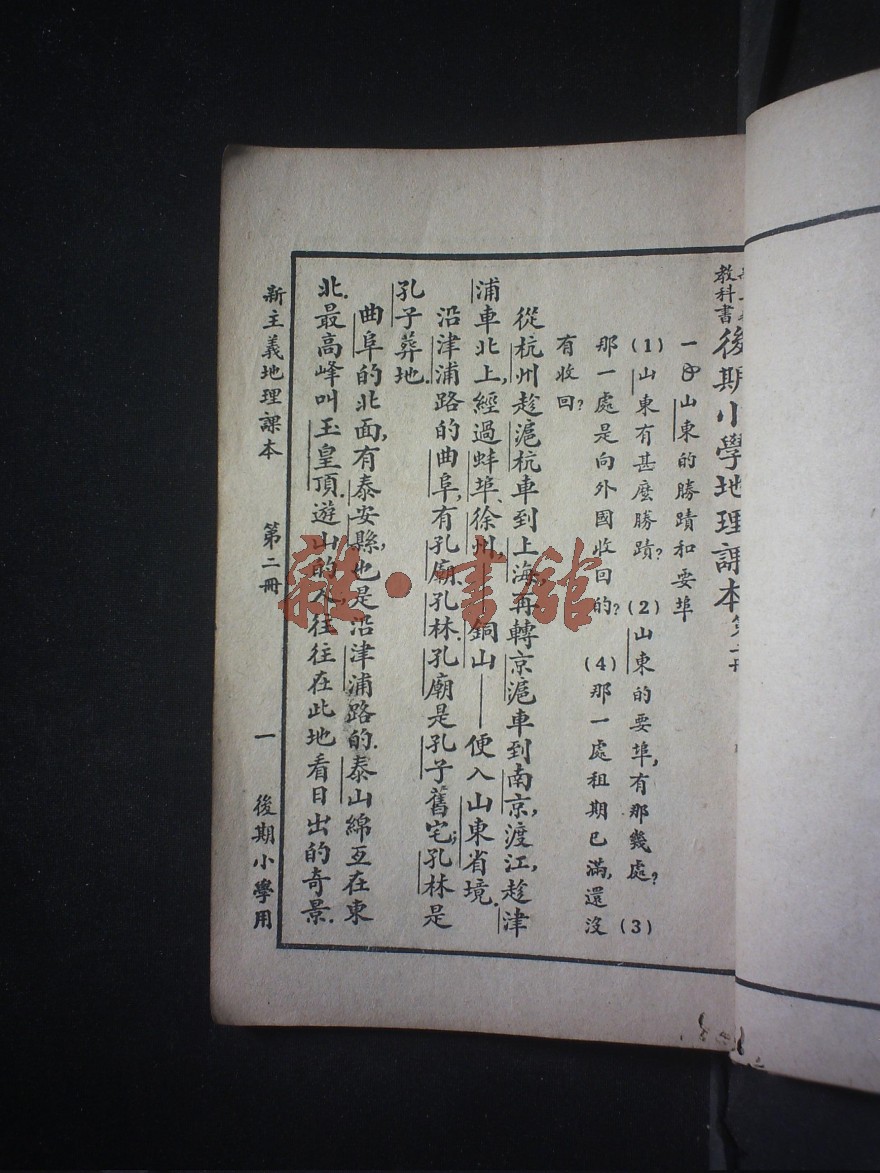 教科書 後期小學地理課本
一 山東的勝蹟和要埠
(1) 山東有甚麼勝蹟? (2) 山東的要埠,有那幾處? (3)
那一處是向外國收回的? (4) 那一處租期已滿,還沒
有收回?
從杭州趁滬杭車到上海,再轉京滬車到南京,渡江,趁津
浦車北上,經過蚌埠、徐州,銅山——便入山東省境.
沿津浦路的曲阜,有孔廟、孔林.孔廟是孔子舊宅;孔林是
孔子葬地.
曲阜的北面,有泰安縣,也是沿津浦路的.泰山綿亙在東
北.最高峰叫玉皇頂.遊山的人,往往在此地看日出的奇景.
新主義地理課本 第二冊 一 後期小學用
雜·書館